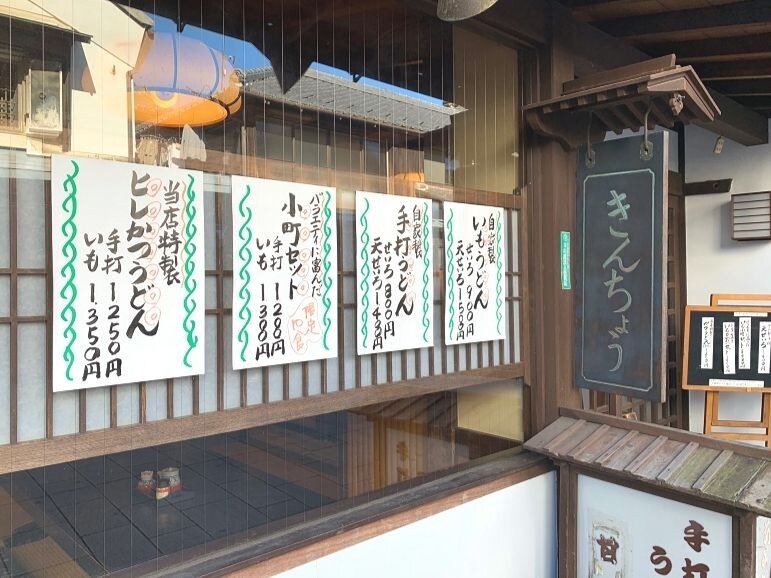 当店特製
ヒレかつうどん
手打 1250円
いも 1350円
バラエティに富んだ
小町セット
手打 1280円
いも 1380円
限定
四食
自家製
手打うどん
せいろ 800円
天せいろ 1430円
自家製
いもうどん
せいろ 900円
天せいろ 1530円
きんちょう
手打
う
甘